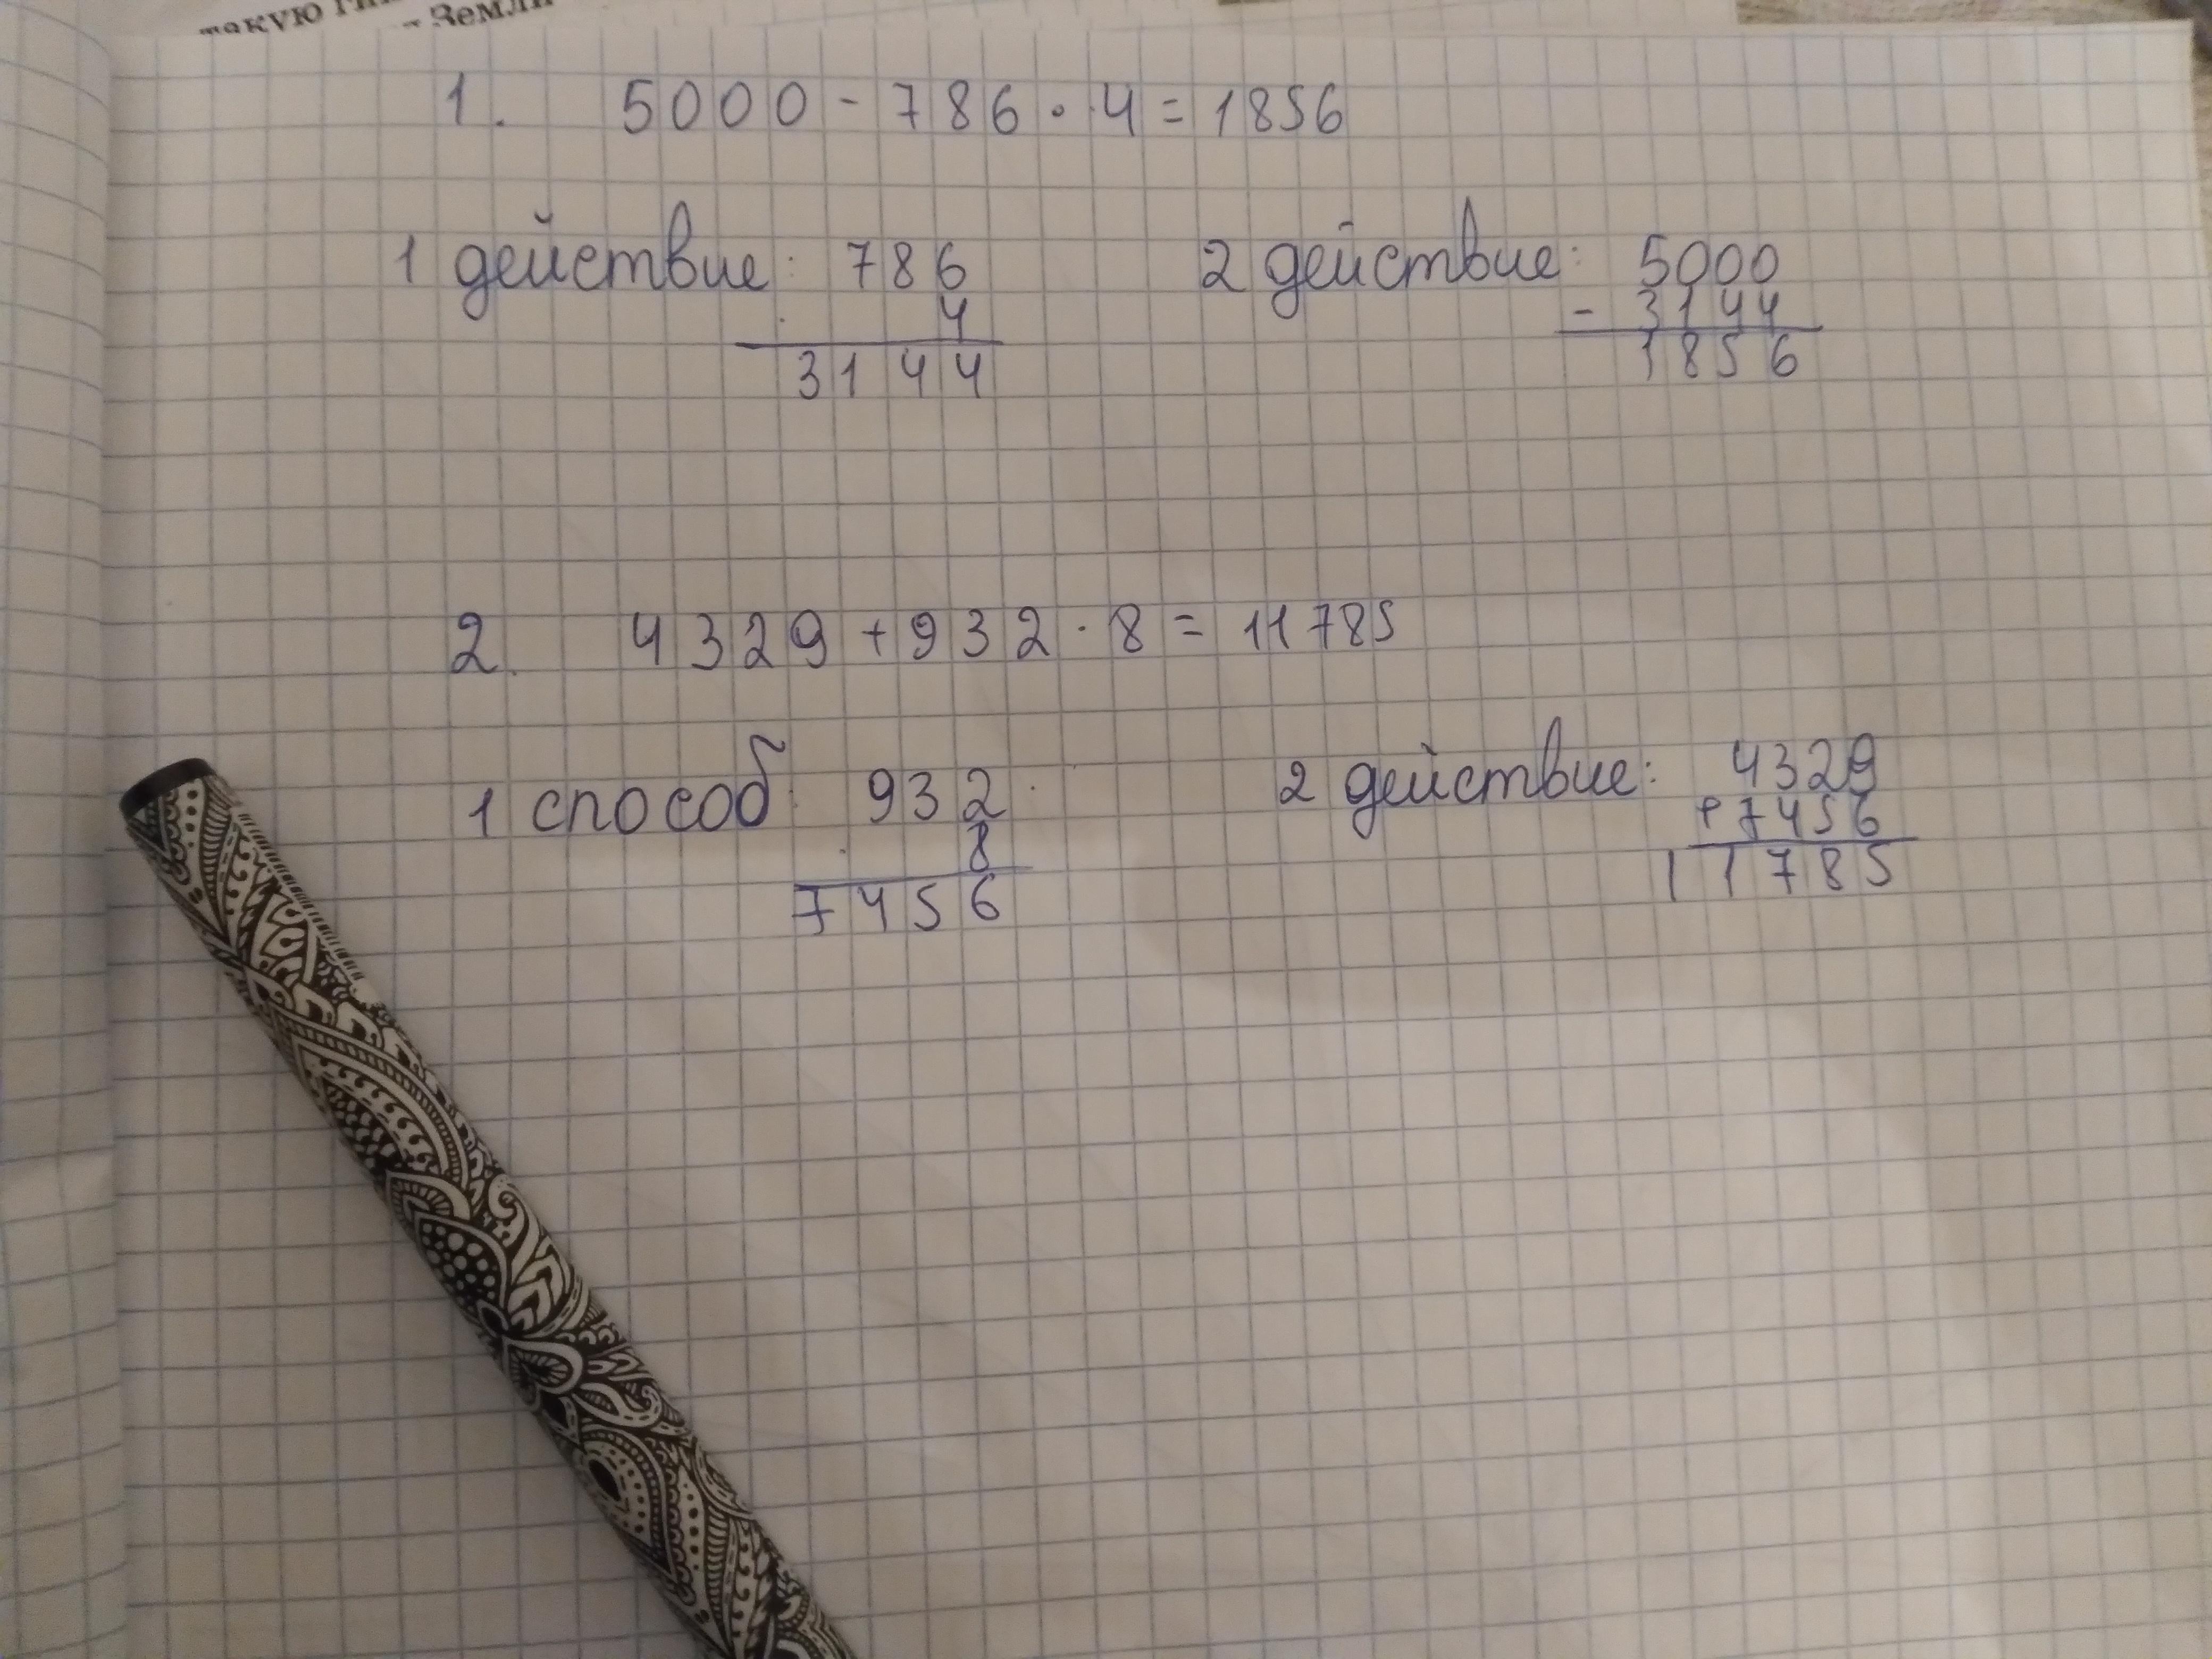 такую
Земли
1. 5000 - 786 · 4 = 1856
1 действие: 786
4
3144
2 действие: 5000
- 3144
1856
2. 4329 + 932 · 8 = 11785
1 способ: 932
8
7456
2 действие: 4329
+ 7456
11785